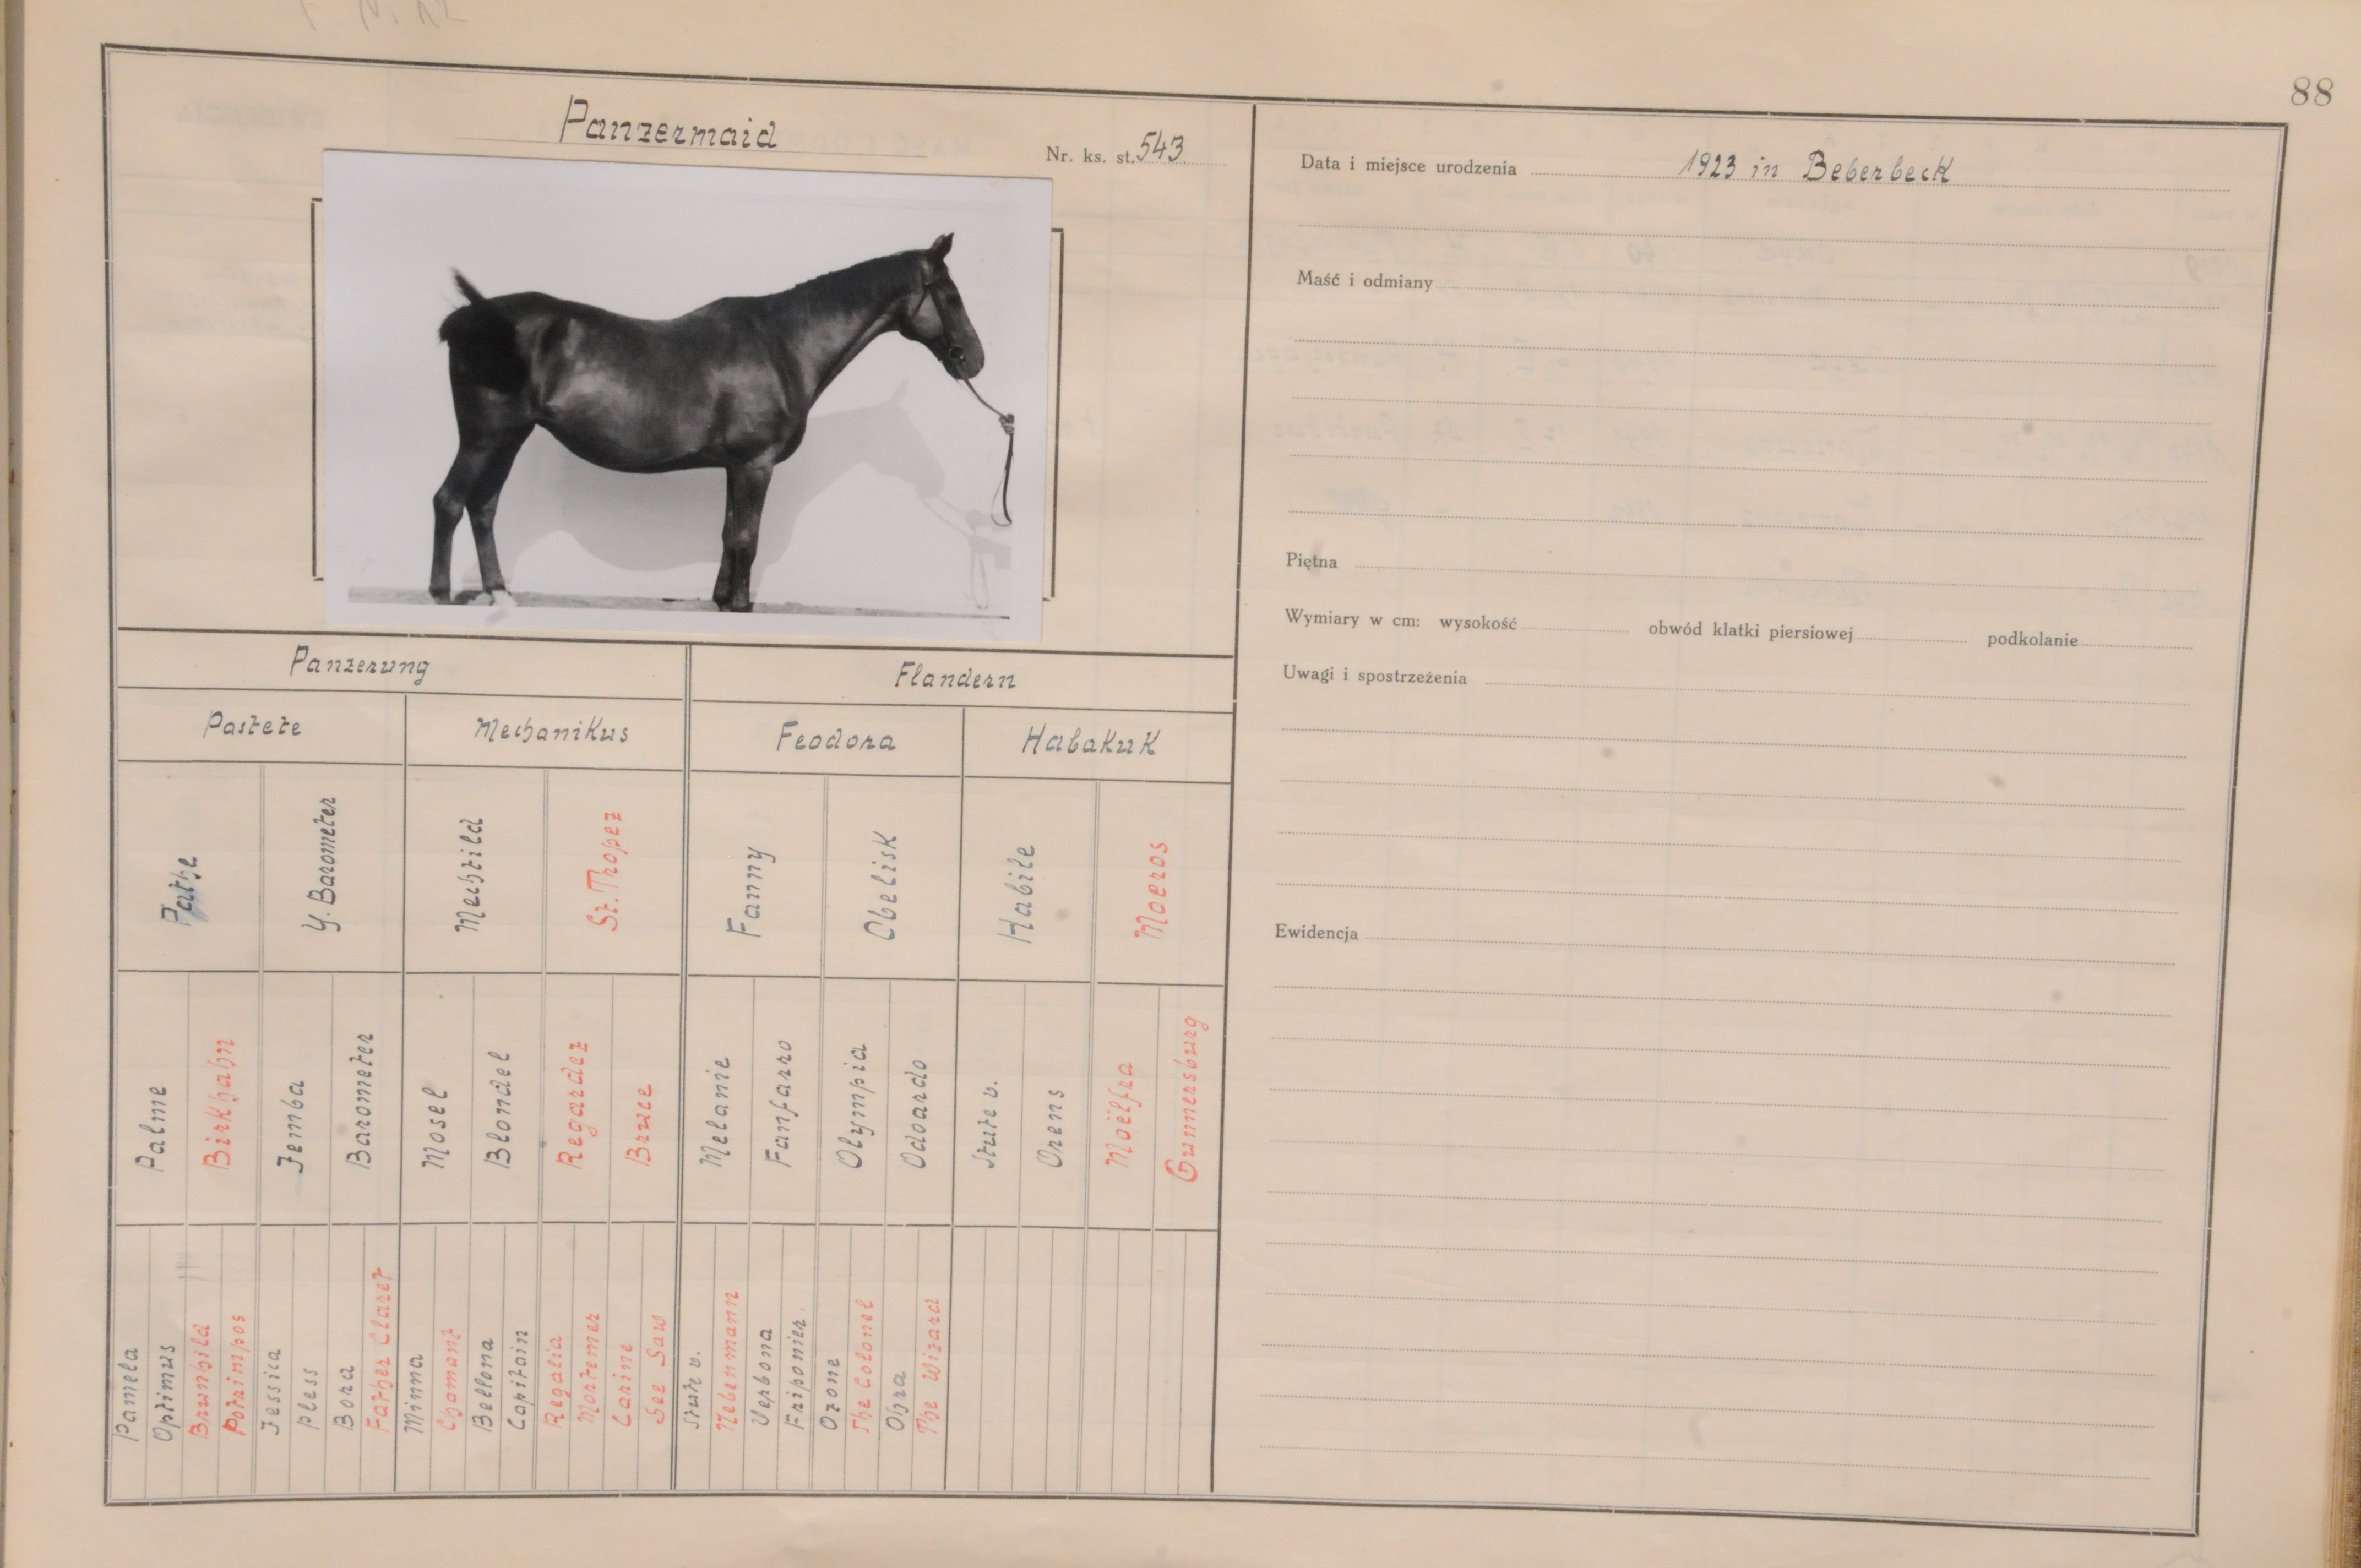 88
Panzermaid
Nr. ks. st. 543
Panzerung
Flandern
Pastete
Mechanikus
Feodora
Habakuk
Pathe
Y. Barometer
Mechtild
St. Tropez
Fanny
Obelisk
Habite
Moeros
Palme
Birkhahn
Jemba
Barometer
Mosel
Blondel
Regardez
Bruce
Melanie
Fanfarro
Olympia
Odoardo
Stute v.
Orens
Moëlfra
Gumersburg
Pamela
Optimus
Brunhild
Potrimpos
Jessica
Pless
Bora
Father Claret
Minna
Chamant
Bellona
Capitain
Regalia
Mortemer
Carine
See Saw
Stute v.
Nebenmann
Verbona
Friponier.
Ozone
The Colonel
Ohra
The Wizard
Data i miejsce urodzenia 1923 in Beberbeck
Maść i odmiany
Piętna
Wymiary w cm: wysokość obwód klatki piersiowej podkolanie
Uwagi i spostrzeżenia
Ewidencja